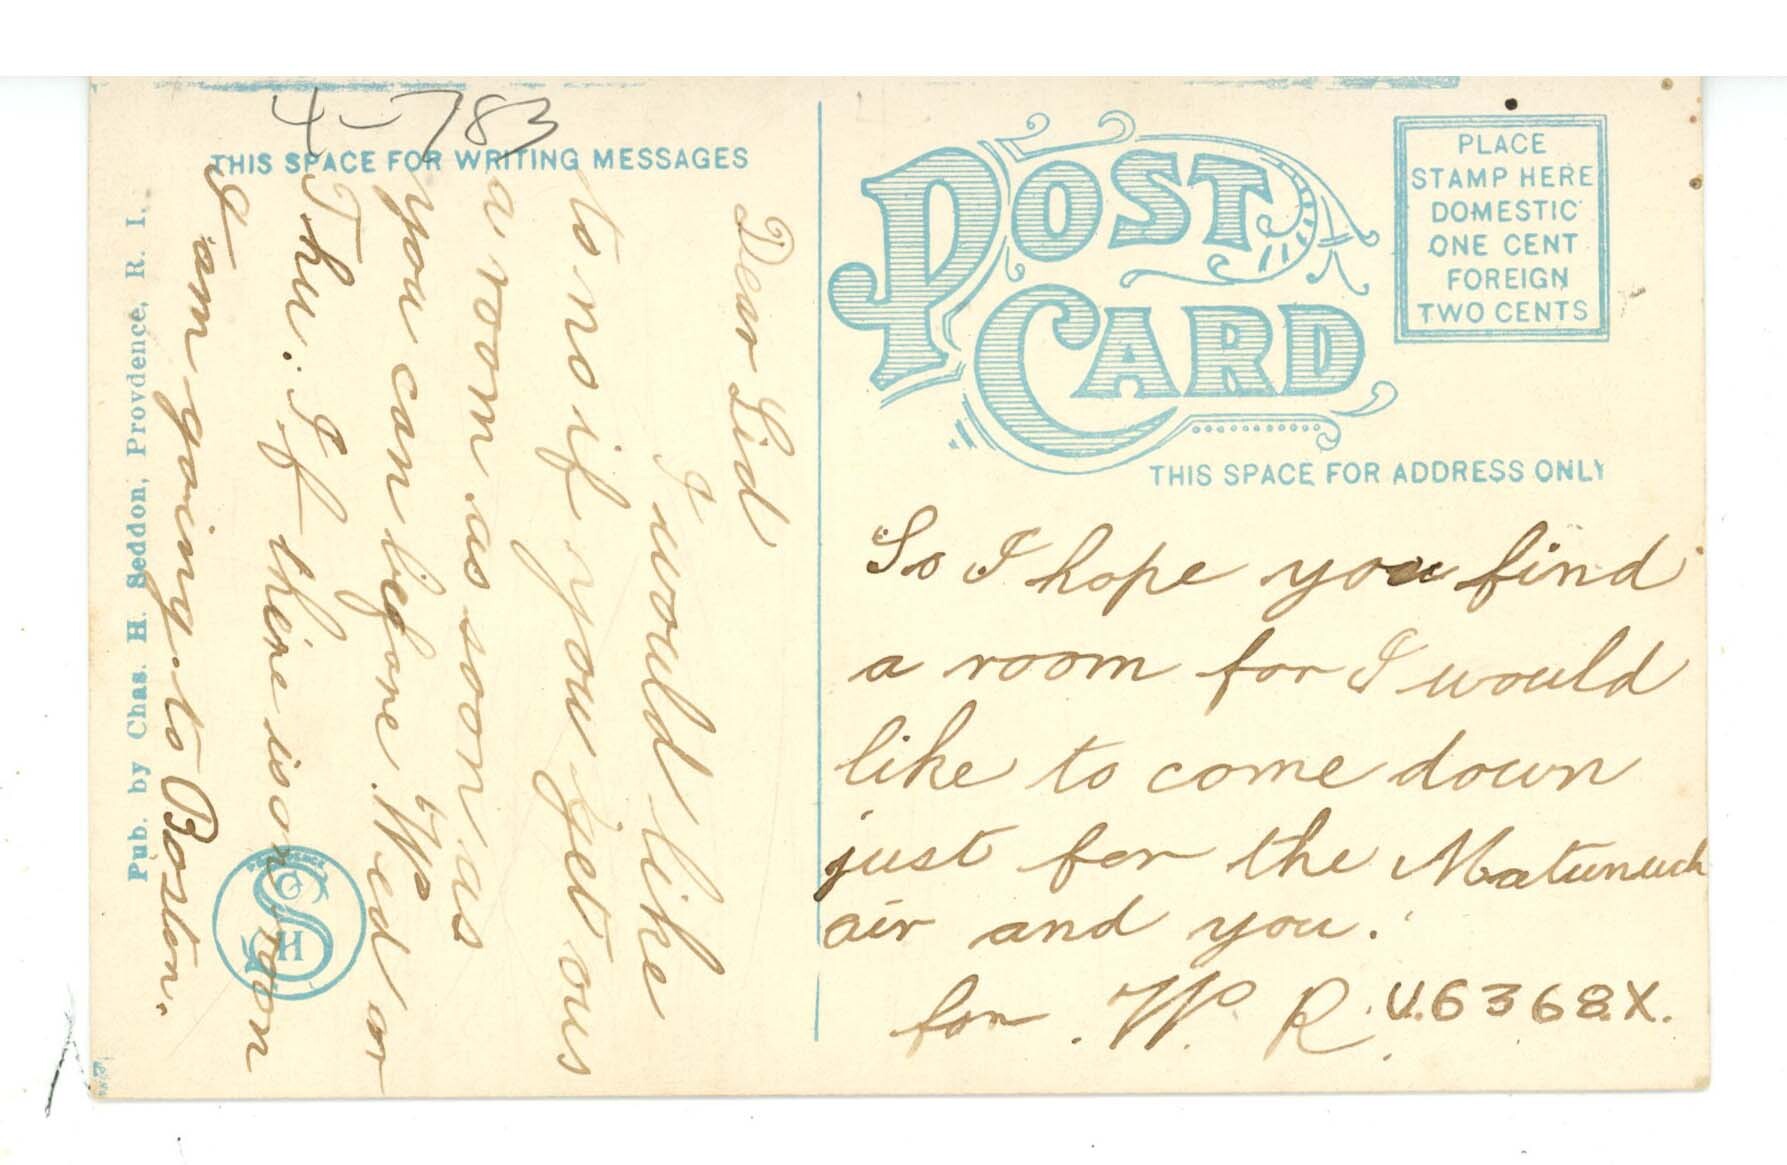 4-783
THIS SPACE FOR WRITING MESSAGES
Dear Sid
I would like
to no if you get ous
a room as soon as
you can before Wed or
Thu. If there is on roon
I am going to Boston.
Pub. by Chas. H. Seddon, Provdence, R. I.
S H
POST CARD
PLACE
STAMP HERE
DOMESTIC
ONE CENT
FOREIGN
TWO CENTS
THIS SPACE FOR ADDRESS ONLY
So I hope you find
a room for I would
like to come down
just for the Matunuch
air and you.
for W. R. U.6368.X.